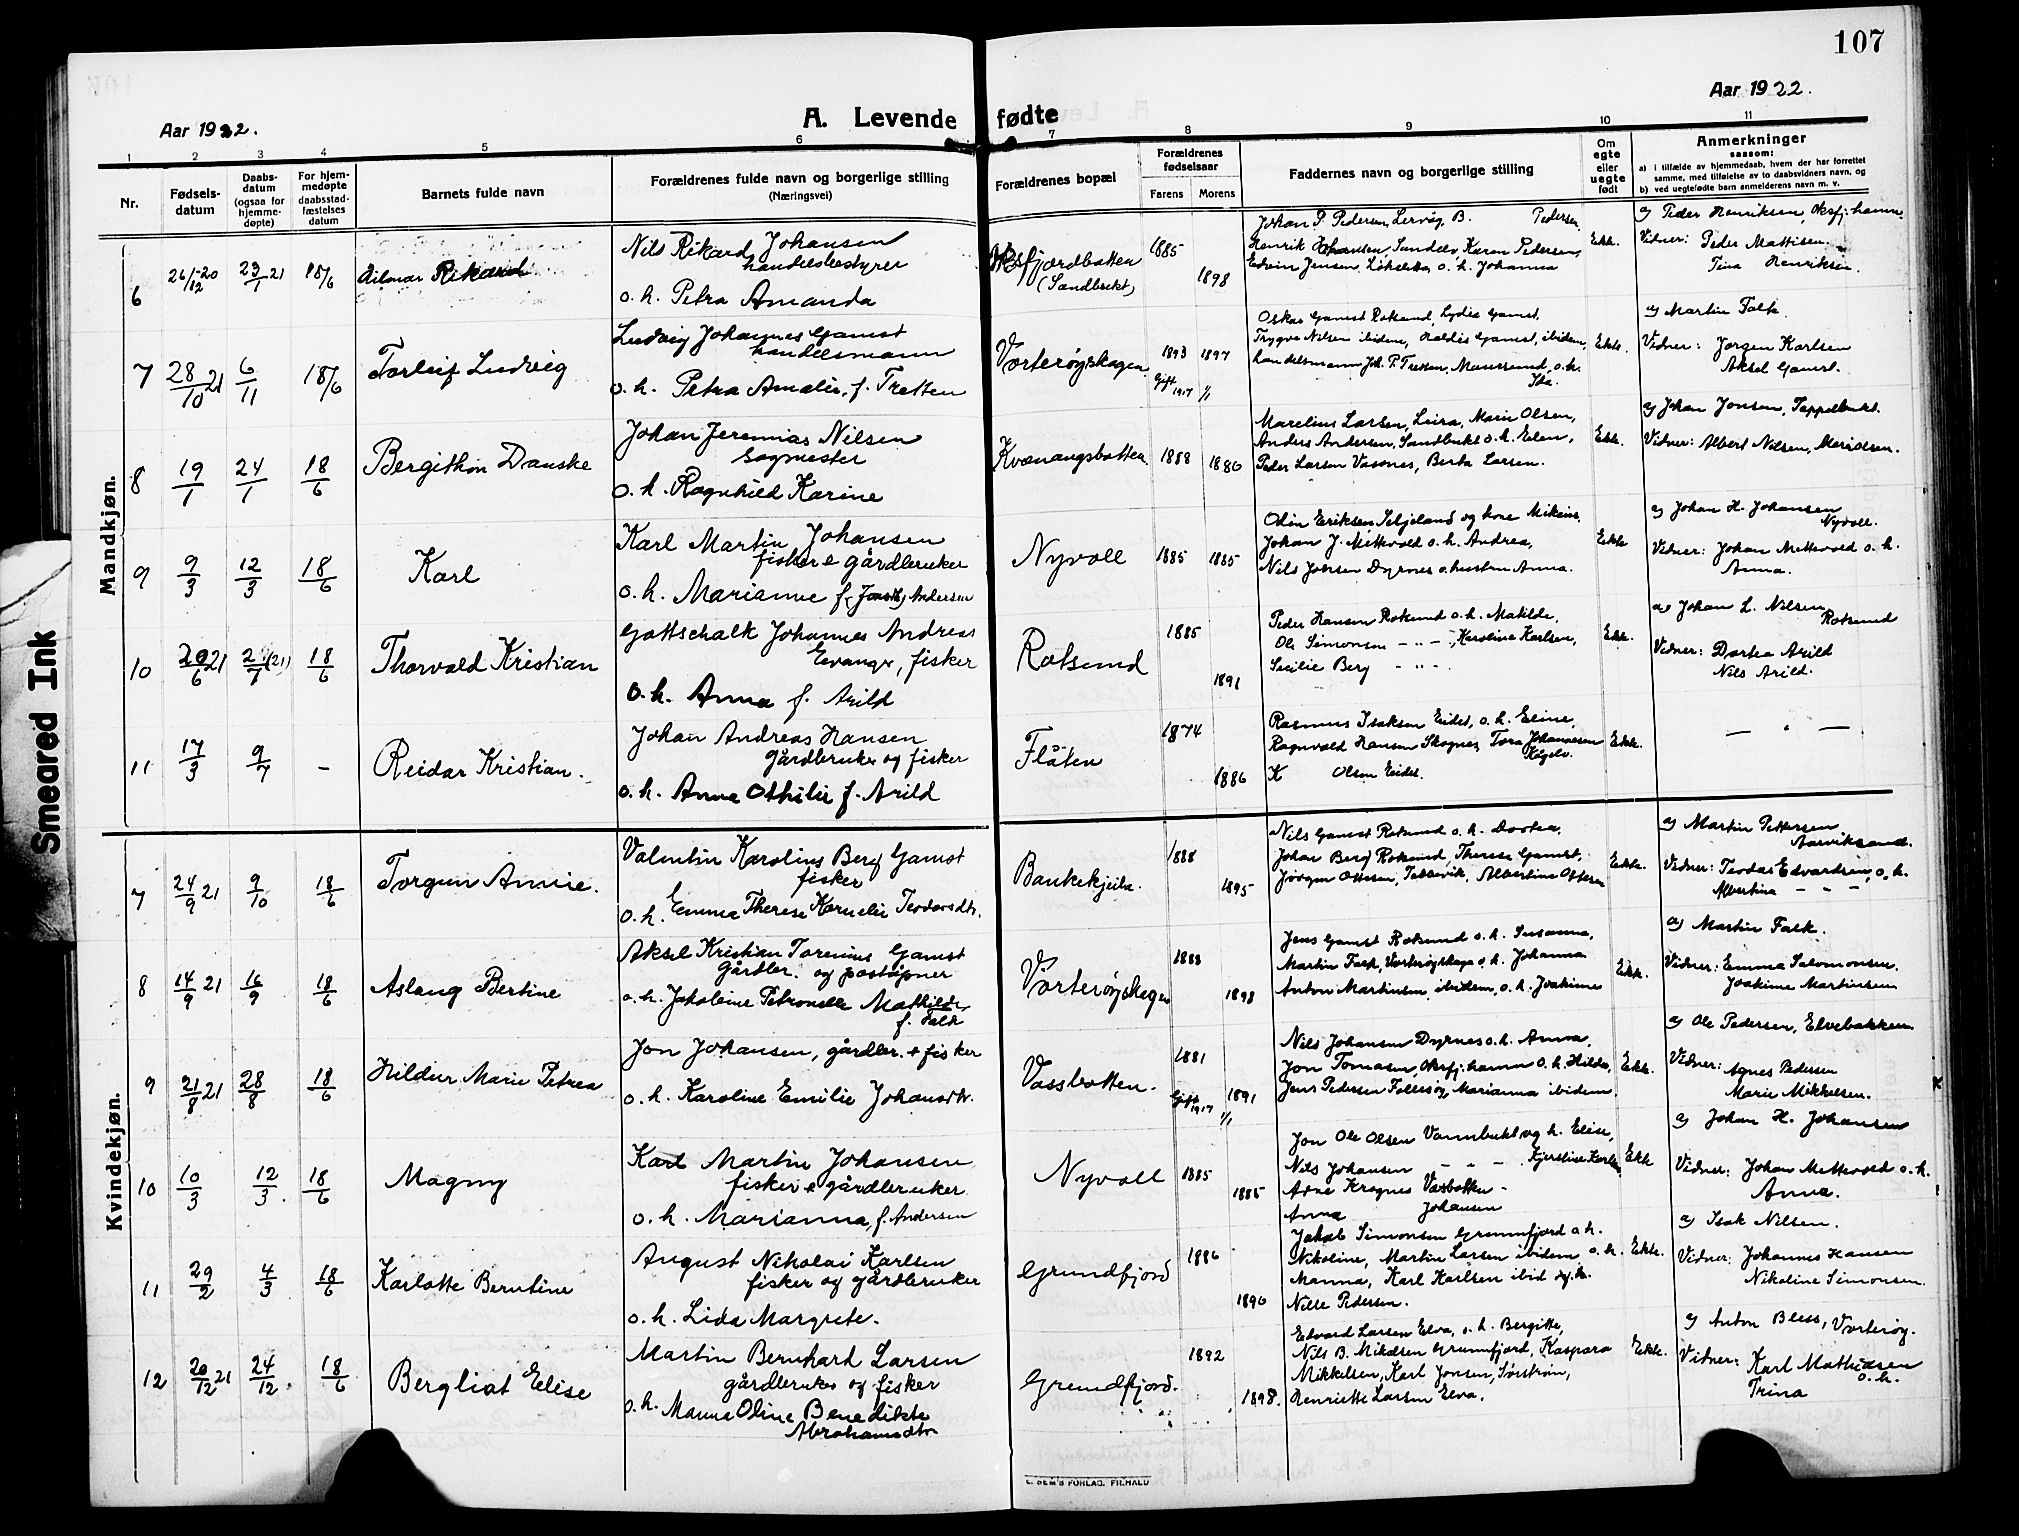 107
Aar 1922.
A. Levende
fødte
Aar 1922.
1 2 3 4 5 6 7 8 9 10 11
Nr.
Fødsels-
datum
Daabs-
datum
(ogsaa for
hjemme-
døpte)
For hjem-
medøpte
daabsstad-
fæstelses
datum
Barnets fulde navn
Forældrenes fulde navn og borgerlige stilling
(Næringsvei)
Forældrenes bopæl
Forældrenes
fødselsaar
Farens Morens
Faddernes navn og borgerlige stilling
Om
egte
eller
uegte
født
Anmerkninger
saasom:
a) i tilfælde av hjemmedaab, hvem der har forrettet
samme, med tilføielse av to daabsvidners navn, og
b) ved uegtefødte barn anmelderens navn m. v.
Mandkjøn.
6 26/12-20 23/1 21 18/6 Rikard
Nils Rikard Johansen
handelsbestyrer
o. h. Petra Amanda
(Sandbukt)
1885
1898
Johan P. Pedersen, Lervåg, B. Pedersen
Henrik Johansen, Karen Pedersen,
Edvin Jensen, o. h. Johanna
Ekte.
a) Peder Henriksen, Oksfj.hamn.
Vidner: Peder Mattisen.
Tina Henriksen.
7 28/10 21 6/11 18/6 Torleif Ludvig
Ludvig Johannes Gamst
handelsmann
o. h. Petra Amalie, f. Tretten
Vorterøyskagen
1893 1897
Gift 1917 1/1
Oskar Gamst Rotsund, Lydia Gamst,
Trygve Nilsen ibidem, Gamst, ibidem,
handelsmann Joh. P. Tretten, Maursund, o. h.
Ida.
Ekte.
a) Martin Falk.
Vidner: Jørgen Karlsen
Aksel Gamst.
8 19/1 24/1 18/6 Bergithon Danske
Johan Jeremias Nilsen
sagmester
o. h. Ragnhild Karine
Kvænangsbotten
1888 1886
Marelius Larsen, Leira, Marie Olsen,
Anders Andersen, Sandbukt o. h. Elen,
Peder Larsen Vasnes, Berta Larsen.
Ekte.
a) Johan Jonsen, Toppelbukt.
Vidner: Albert Nilsen,
9 9/3 12/3 18/6 Karl
Karl Martin Johansen
fisker & gårdbruker
o. h. Marianne f. Andersen
Nyvoll
1885 1885
Odin Eriksen og kone
Johan J. Mettevold o. h. Andrea,
Nils Dyrnes o. hustru Anna.
Ekte
a) Johan H. Johansen
Nyvoll.
Vidner: Johan Mettevold o. h.
Anna.
10 20/6 21 2/7 (21) 18/6 Thorvald Kristian
Gottschalk Johannes Andreas
fisker
o. h. Anna f. Arild
Rotsund
1885
1891
Peder Hansen Rotsund o. h. Matilde,
Ole Simonsen - " - , Karoline Karlsen,
Secilie Berg - " - .
Ekte.
a) Johan L. Nilsen
Rotsund
Vidner: Dortea Arild
Nils Arild.
11 17/3 9/7 - Reidar Kristian.
Johan Andreas Hansen
Gårdbruker og fisker
o. h. Anna Othilie f. Arild
Flåten
1874
1886
Rasmus Isaksen Eidet, o. h. Eline,
Ragnvald Hansen Skognes, Tora Johannesen
K Olsen Eidet.
Ekte.
— " —
Kvindekjøn.
7 24/9 21 9/10 18/6 Torgun Annie.
Valentin Karolius Berg Gamst
fisker
o. h. Emma Therese Kornelie Teodorsdtr.
Bankekjeila.
1888
1895
Nils Gamst Rotsund o. h. Dortea,
Johan Berg Rotsund, Therese Gamst,
Jørgen Ottesen, Tabbevik, Albertine Ottesen
Ekte.
a) Martin Pettersen
Aarviksand.
Vidner: Teodor Edvardsen, o. h.
Albertina - - -
8 14/9 21 16/9 18/6 Aslaug Bertine
Aksel Kristian Torenius Gamst
Gårdbr. og postøpner
o. h. Jakobine Petronelle Mathilde
f. Falk
Vorterøyskagen
1883
1898
Jens Gamst Rotsund o. h. Susanna,
Martin Falk, Vorterøyskage o. h. Johanna
Anton Martinsen, ibidem, o. h. Joakime
Ekte.
a) Martin Falk.
Vidner: Emma Salomonsen.
Joakime Martinsen
9 21/8 21 28/8 18/6 Hildur Marie Petrea
Jon Johansen, gårdbr. + fisker
o. h. Karoline Emilie Johansdtr.
Vassbotten.
1881
Gift 1917 1/1
1891
Nils Johansen Dyrnes o. h. Anna,
Jon Tomasen, Oksfj.hamn o. h. Hilda,
Jens Pedersen Follesøy, Marianna ibidem.
Ekte.
a) Ole Pedersen, Elvebakken
Vidner: Agnes Pedersen
Marie Mikkelsen.
10 10/3 12/3. 18/6 Magny
Karl Martin Johansen
fisker & gårdbruker
o. h. Marianna, f. Andersen
Nyvoll
1885
1885
Jon Ole Olsen Vannbukt og h. Elise,
Nils Johansen - - -
Arne Kragnes Vasbotten -
Anna Johansen
Ekte
a) Johan H. Johansen
Vidner: Johan Mettevold o. h.
Anna.
11 29/2 4/3 18/6 Karlotte Berntine
August Nikolai Karlsen
fisker og gårdbruker
o. h. Lida Margrete.
Grundfjord
1886
1890
Jakob Simonsen Grunnfjord o. h.
Nikoline, Martin Larsen ibidem o. h.
Manna, Karl Karlsen ibid og h.
Nelle Pedersen.
Ekte.
a) Isak Nilsen.
Vidner: Johannes Hansen
Nikoline Simonsen.
12 20/12 21 24/12. 18/6 Bergliot Elise
Martin Bernhard Larsen
gårdbruker og fisker
o. h. Manna Oline Benedikte
Abrahamsdtr
Grundfjord.
1892
1898.
Edvard Larsen Elva, o. h. Bergitte,
Nils B. Mikalsen Grunnfjord, Kaspara
Mikkelsen, Karl Jonsen, Sørstrøm,
Henriette Larsen Elva.
Ekte.
a) Anton Bless, Vorterøy.
Vidner: Karl Mathisen
o. h.
Trina
E. SEM'S FORLAG, FR.HALD
Smeared Ink